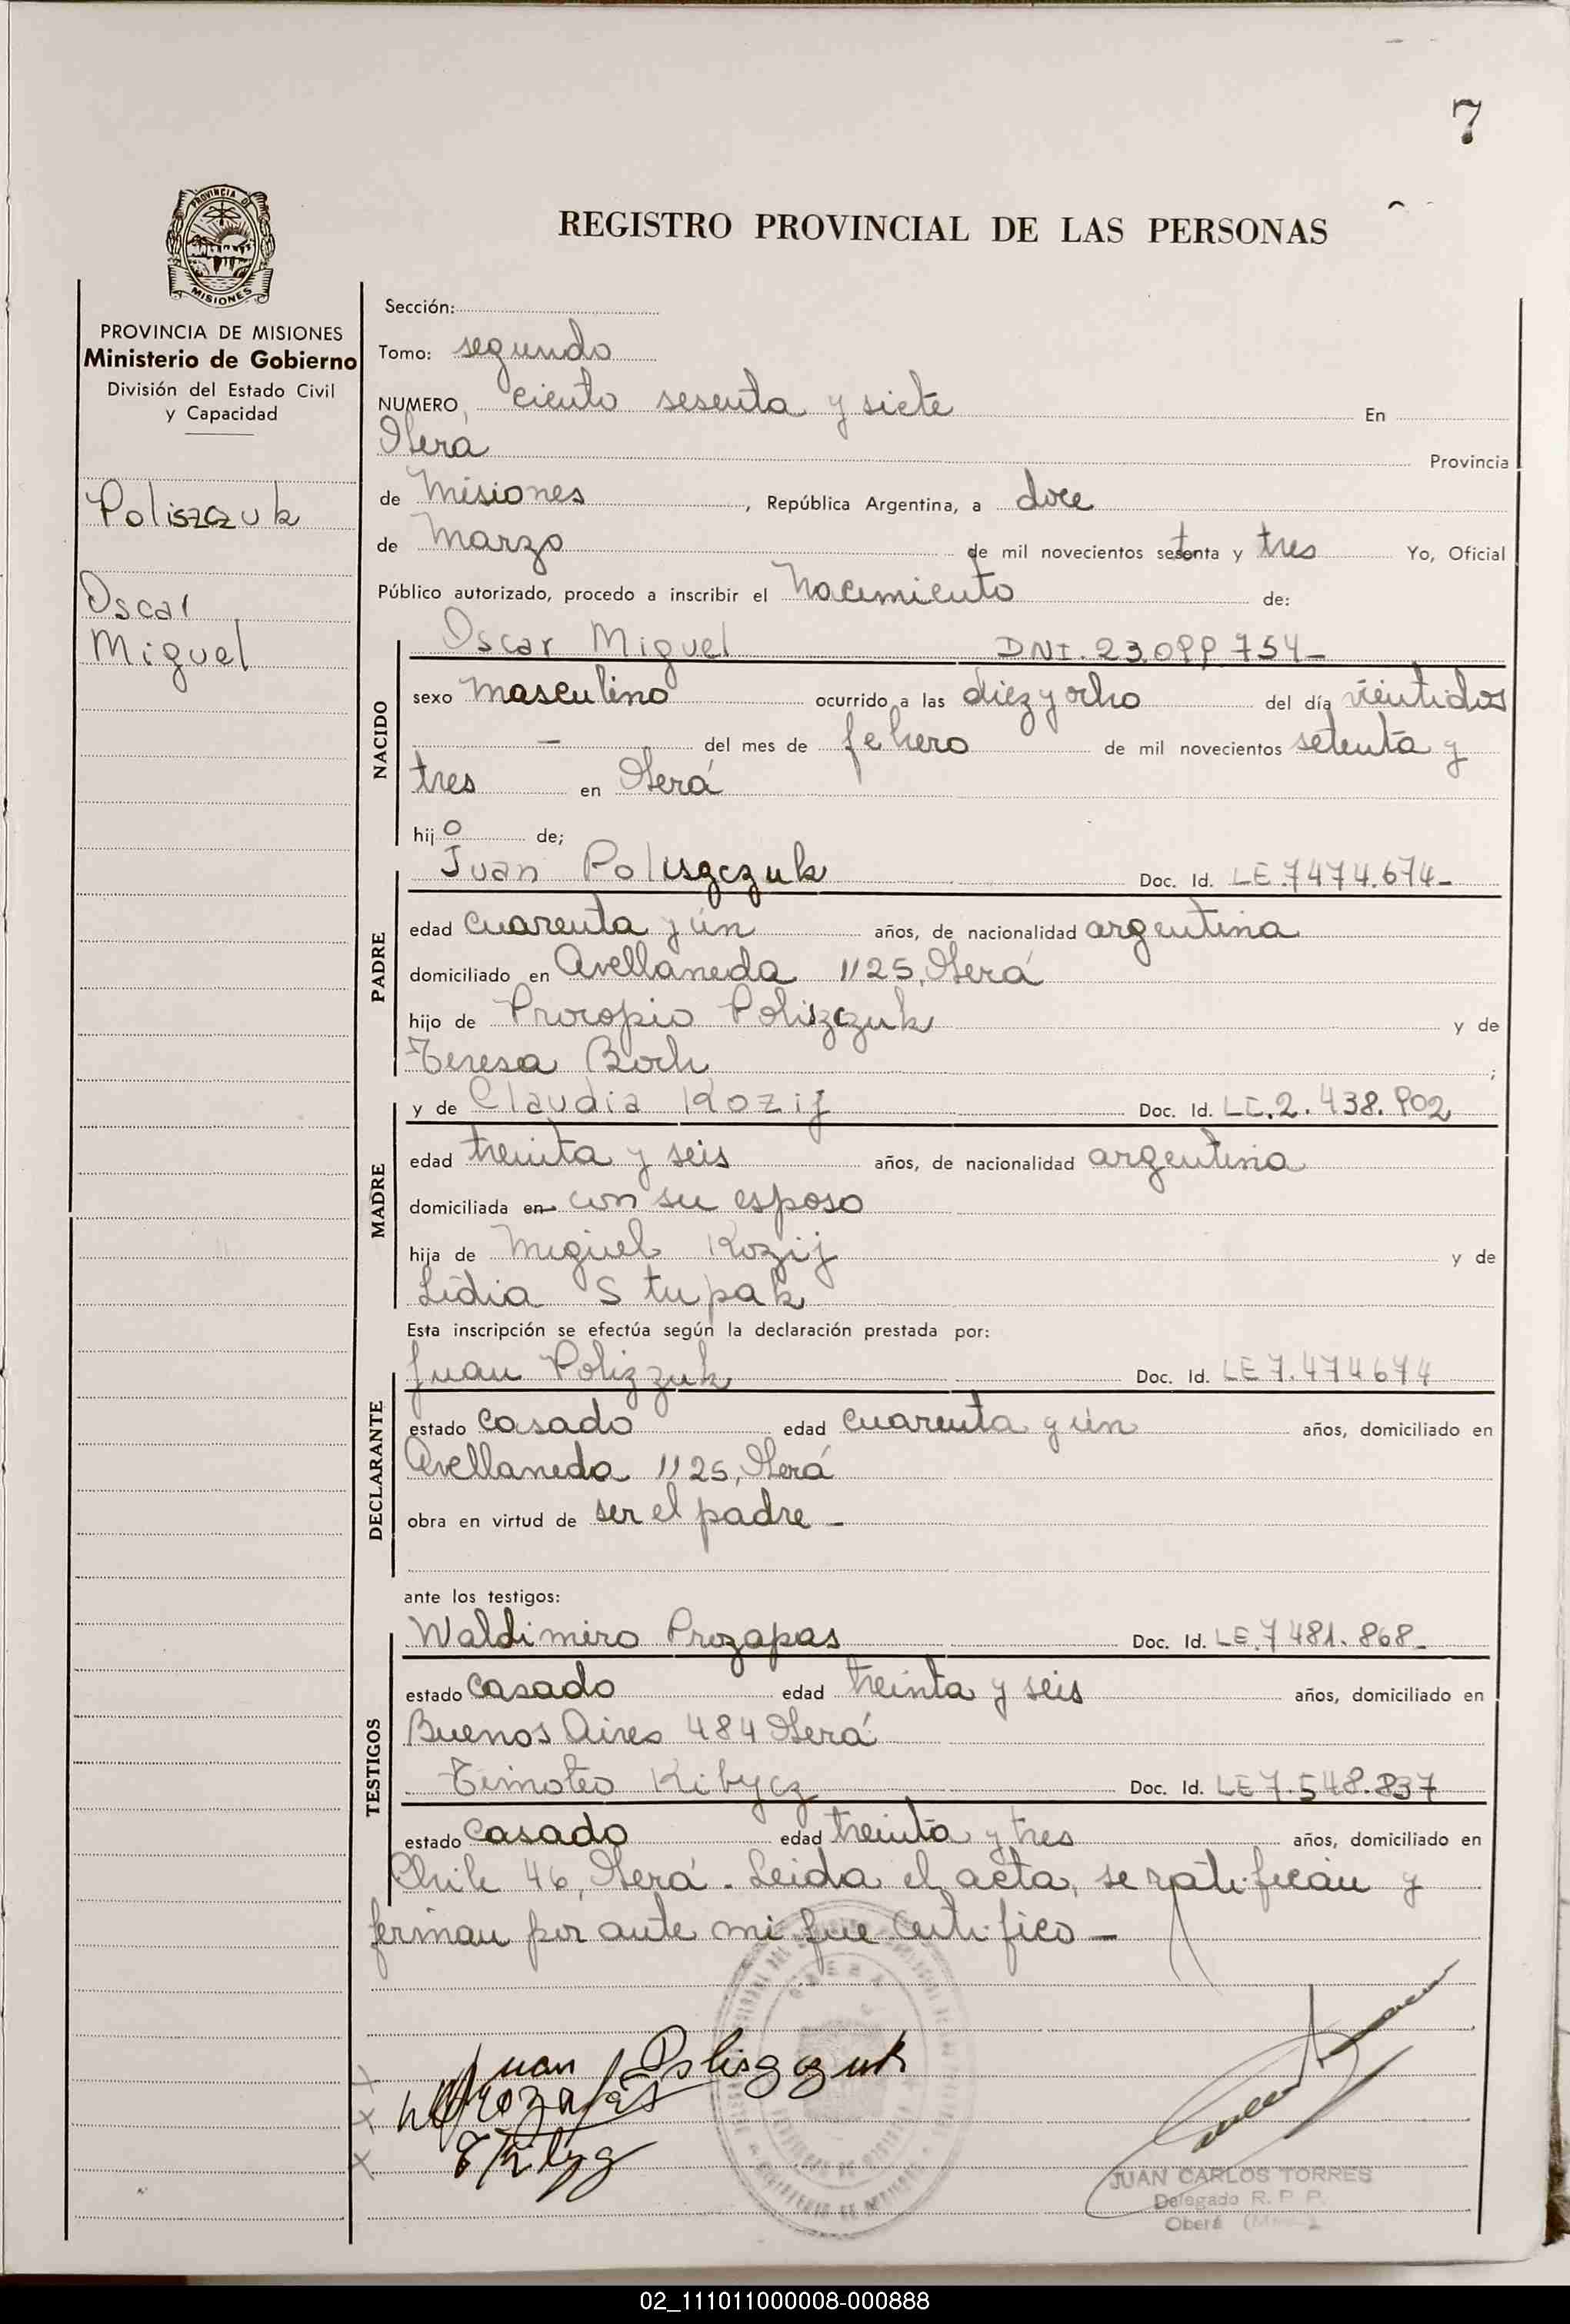 7
PROVINCIA DE
MISIONES
REGISTRO PROVINCIAL DE LAS PERSONAS
PROVINCIA DE MISIONES
Ministerio de Gobierno
División del Estado Civil
y Capacidad
Poliszczuk
Oscar
Miguel
Sección:
Tomo: segundo
NUMERO, ciento sesenta y siete En
Oberá Provincia
de Misiones, República Argentina, a doce
de Marzo de mil novecientos setenta y tres Yo, Oficial
Público autorizado, procedo a inscribir el Nacimiento de:
NACIDO
Oscar Miguel DNI. 23.099.754-
sexo masculino ocurrido a las diez y ocho del día veintidos
- del mes de febrero de mil novecientos setenta y
tres en Oberá
hijo de;
PADRE
Juan Poliszczuk Doc. Id. LE.7474.674-
edad cuarenta y ún años, de nacionalidad argentina
domiciliado en Avellaneda 1125, Oberá
hijo de Procopio Poliszczuk y de
Teresa Boch;
MADRE
y de Claudia Kozij Doc. Id. LC.2.438.902
edad treinta y seis años, de nacionalidad argentina
domiciliada en con su esposo
hija de Miguel Kozij y de
Lidia Stupak
Esta inscripción se efectúa según la declaración prestada por:
DECLARANTE
Juan Polizzuk Doc. Id. LE 7.474674
estado casado edad cuarenta y ún años, domiciliado en
Avellaneda 1125, Oberá
obra en virtud de ser el padre -
ante los testigos:
TESTIGOS
Waldimiro Prozapas Doc. Id. LE.7481.868-
estado casado edad treinta y seis años, domiciliado en
Buenos Aires 484 Oberá
Timoteo Kibycz Doc. Id. LE 7.548.837
estado casado edad treinta y tres años, domiciliado en
Chile 46, Oberá. Leida el acta, se ratifican y
firman por ante mi que certifico -
Juan Poliszczuk
JUAN CARLOS TORRES
Delegado R. P. P.
Oberá
02_111011000008-000888